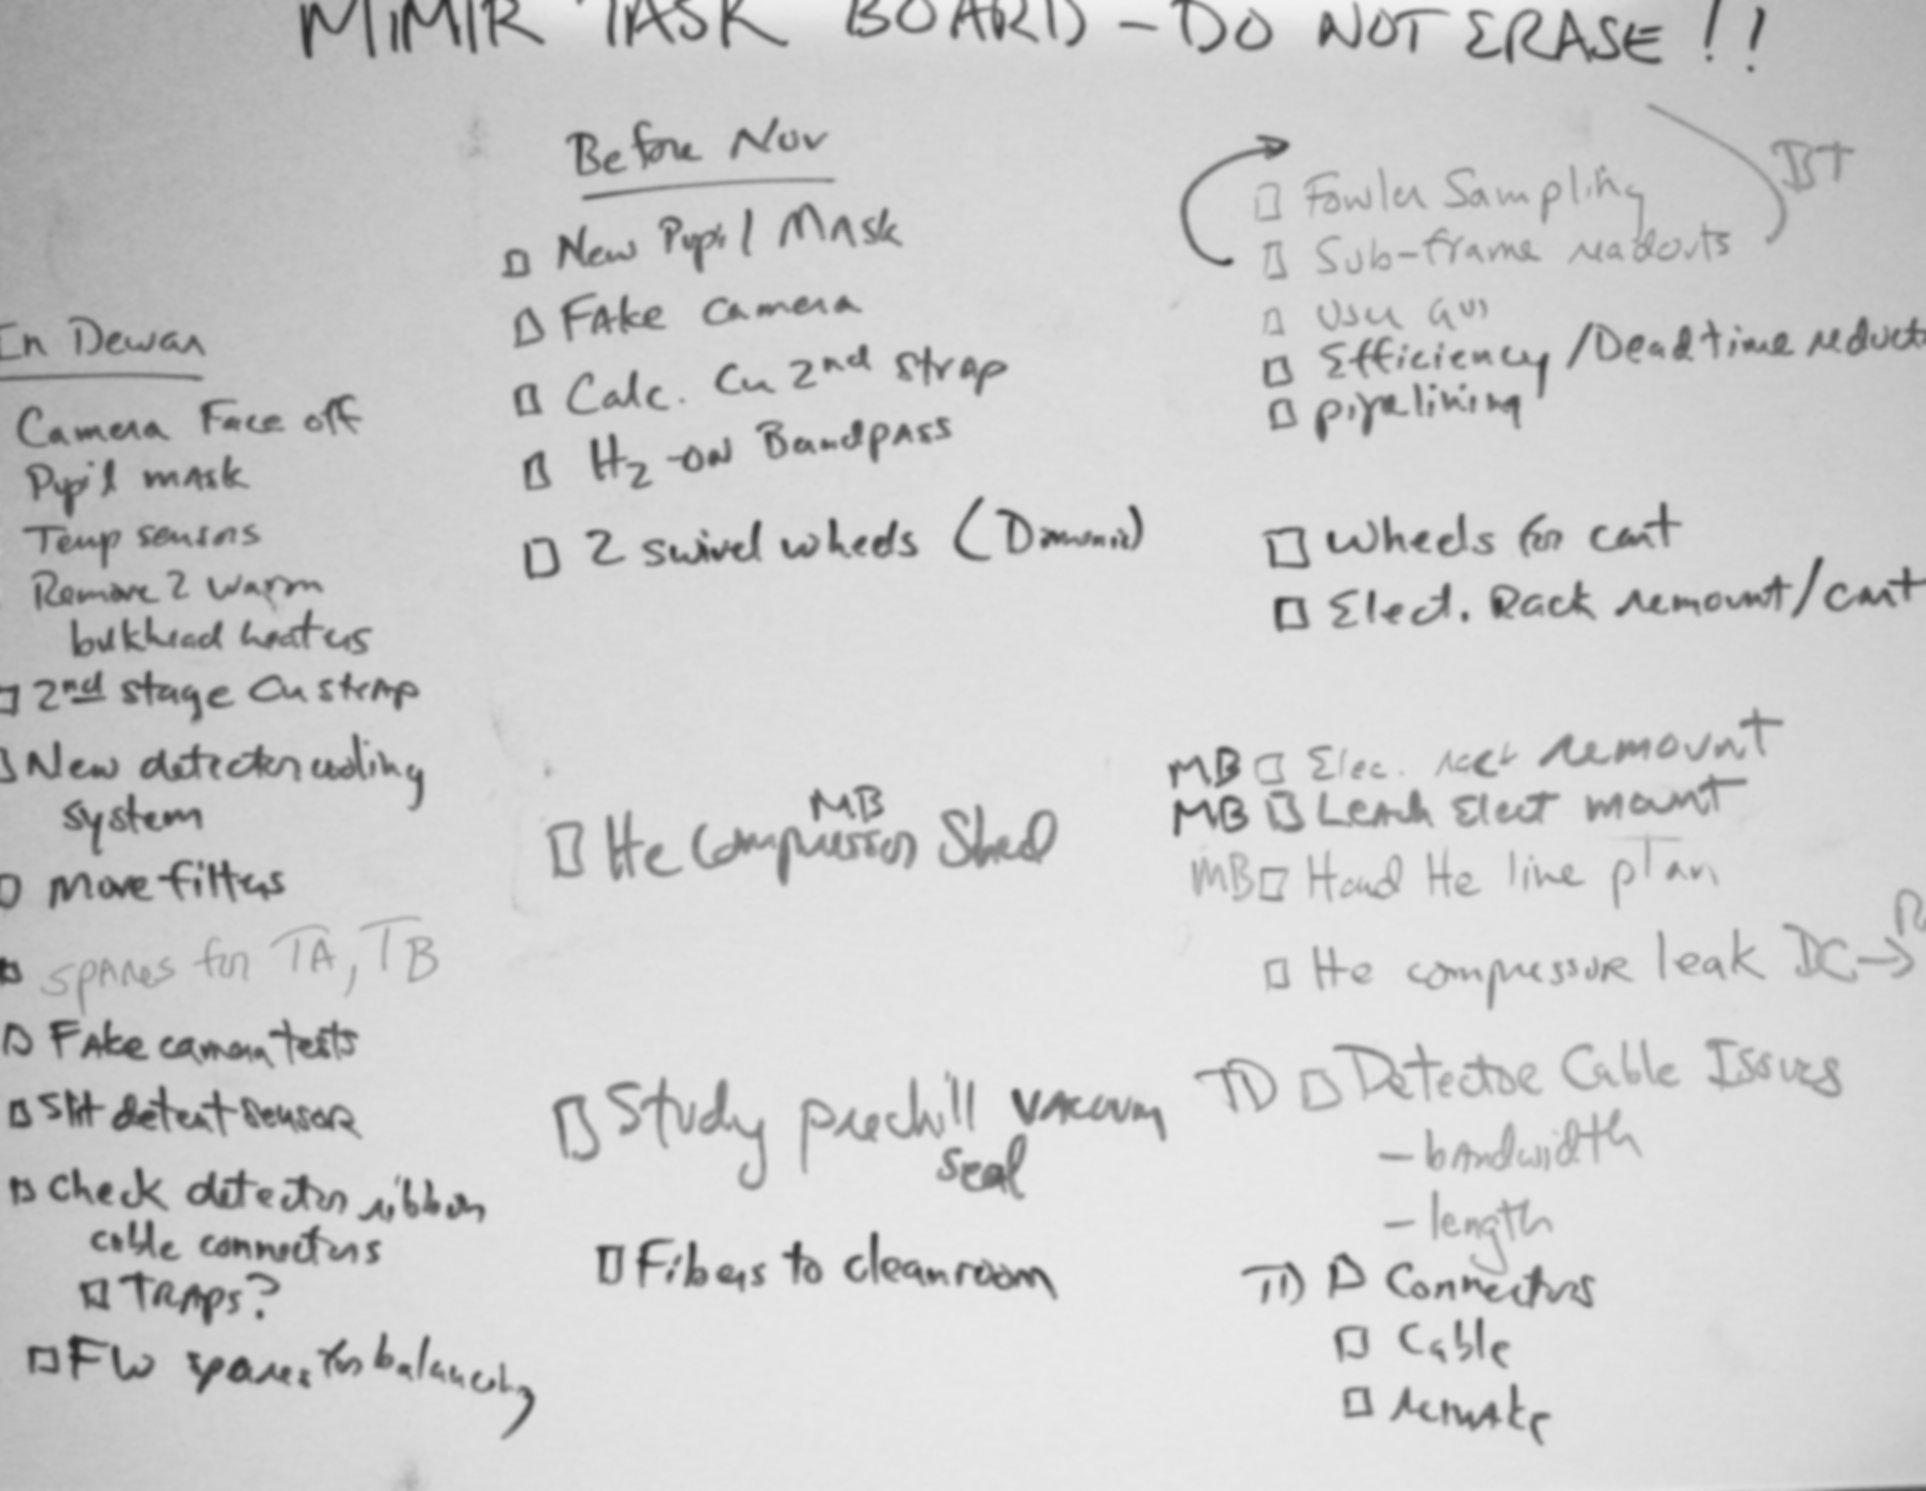 MIMIR TASK BOARD - DO NOT ERASE!!
In Dewar
Camera Face off
Pupil mask
Temp sensors
Remove 2 warm
bulkhead heaters
2nd stage Cu strap
New detector cooling
system
More filters
spares for TA, TB
Fake camera tests
Slit detent sensor
Check detector ribbon
cable connectors
TRAPS?
FW spares for balancing
Before Nov
New Pupil Mask
Fake camera
Calc. Cu 2nd strap
H2-on Bandpass
2 swivel wheels
MB
He Compressor Shed
Study prechill vacuum
seal
Fibers to cleanroom
BT
Fowler Sampling
Sub-frame readouts
User GUI
Efficiency/Deadtime reduct
pipelining
Wheels for cart
Elect. Rack remount/cart
MB Elec. rack remount
MB Leach Elect mount
MB He line plan
He compressor leak DC→
TD Detector Cable Issues
- bandwidth
- length
TD Connectors
Cable
remake